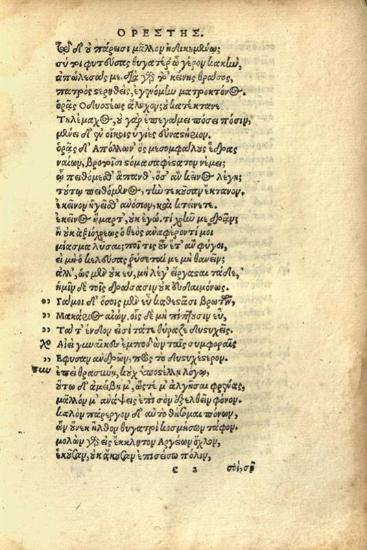 ΟΡΕΣΤΗΣ.
Τῷ δ' οὐ πάρεισι μᾶλλον ἠδικημένῳ;
σύ τοι φυτεύσας θυγατέρ' ὦ γέρον κακὴν,
ἀπώλεσάς με. διὰ γὰρ τὸ κείνης θράσος,
πατρὸς στερηθεὶς, ἐγενόμην ματροκτόνος.
ὁρᾷς Ὀδυσσέως ἄλοχον; οὐ κατέκτανε
Τηλέμαχος. οὐ γὰρ ἐπεγάμει πόσει πόσιν,
μένει δ' ἐν οἴκοις ὑγιὲς εὐνατήριον.
ὁρᾷς δ' Ἀπόλλων' ὃς μεσομφάλους ἕδρας
ναίων, βροτοῖσι στόμα σαφέστατον νέμει.
ᾧ πειθόμεσθ' ἅπανθ', ὅσ' ἂν κεῖνος λέγῃ·
τούτῳ πειθόμενος, τὴν τεκοῦσαν ἔκτανον.
ἐκεῖνον ἡγεῖσθ' ἀνόσιον, καὶ κτάνετε.
ἐκεῖνος ἥμαρτ', οὐκ ἐγώ. τί χρῆν με δρᾶν;
ἢ οὐκ ἀξιόχρεως ὁ θεὸς ἀναφέροντί μοι
μίασμα λῦσαι; ποῖ τις οὖν ἔτ' ἂν φύγοι,
εἰ μὴ ὁ κελεύσας ῥύσεταί με μὴ θανεῖν;
ἀλλ', ὡς μὲν οὐκ εὖ, μὴ λέγ' εἴργασται τάδε,
ἡμῖν δὲ τοῖς δράσασιν οὐκ εὐδαιμόνως.
,, Γάμοι δ' ὅσοις μὲν εὖ καθεστᾶσι βροτῶν,
,, Μακάριος αἰών. οἷς δὲ μὴ πίπτουσιν εὖ,
,, Τά τ' ἔνδον εἰσὶ τά τε θύραζε δυστυχεῖς.
χο Αἰεὶ γυναῖκες ἐμποδὼν ταῖς συμφοραῖς
,, Ἔφυσαν ἀνδρῶν, πρὸς τὸ δυστυχέστερον.
τυν ἐπεὶ θρασύνῃ, κοὐχ ὑποστέλλῃ λόγῳ,
οὕτω δ' ἀμείβῃ μ', ὥστέ μ' ἀλγῆσαι φρένας,
μᾶλλόν μ' ἀνάψεις ἐπὶ σὸν ἐξελθεῖν φόνον.
καλὸν πάρεργον δ' αὐτὸ θήσομαι πόνων,
ὧν οὕνεκ' ἦλθον θυγατρὶ κοσμήσων τάφον.
μολὼν γὰρ εἰς ἔκκλητον Ἀργείων ὄχλον,
ἑκοῦσαν, οὐκ ἄκουσαν ἐπισείσω πόλιν,
ε 2 σοὶ, σῇ